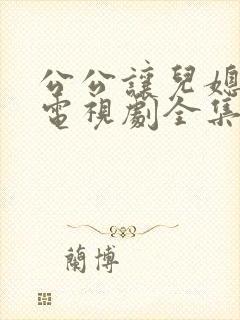 公公讓兒媳
電視劇全集
蘭博